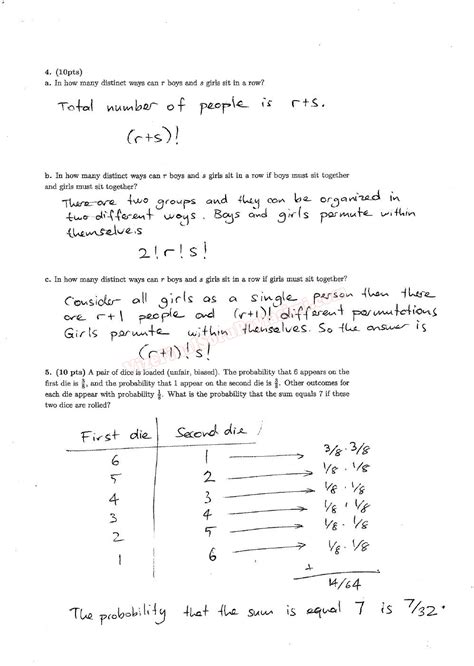 4. (10pts)
a. In how many distinct ways can r boys and s girls sit in a row?
Total number of people is r+s.
(r+s)!
b. In how many distinct ways can r boys and s girls sit in a row if boys must sit together
and girls must sit together?
There are two groups and they can be organized in
two different ways. Boys and girls permute within
themselves
2! r! s!
c. In how many distinct ways can r boys and s girls sit in a row if girls must sit together?
Consider all girls as a single person then there
are r+1 people and (r+1)! different permutations
Girls permute within themselves. So the answer is
(r+1)! s!
5. (10 pts) A pair of dice is loaded (unfair, biased). The probability that 6 appears on the
first die is 3/8, and the probability that 1 appear on the second die is 3/8. Other outcomes for
each die appear with probability 1/8. What is the probability that the sum equals 7 if these
two dice are rolled?
First die Second die
6 1 3/8 · 3/8
5 2 1/8 · 1/8
4 3 1/8 · 1/8
3 4 1/8 · 1/8
2 5 1/8 · 1/8
1 6 1/8 · 1/8
+
14/64
The probability that the sum is equal 7 is 7/32.